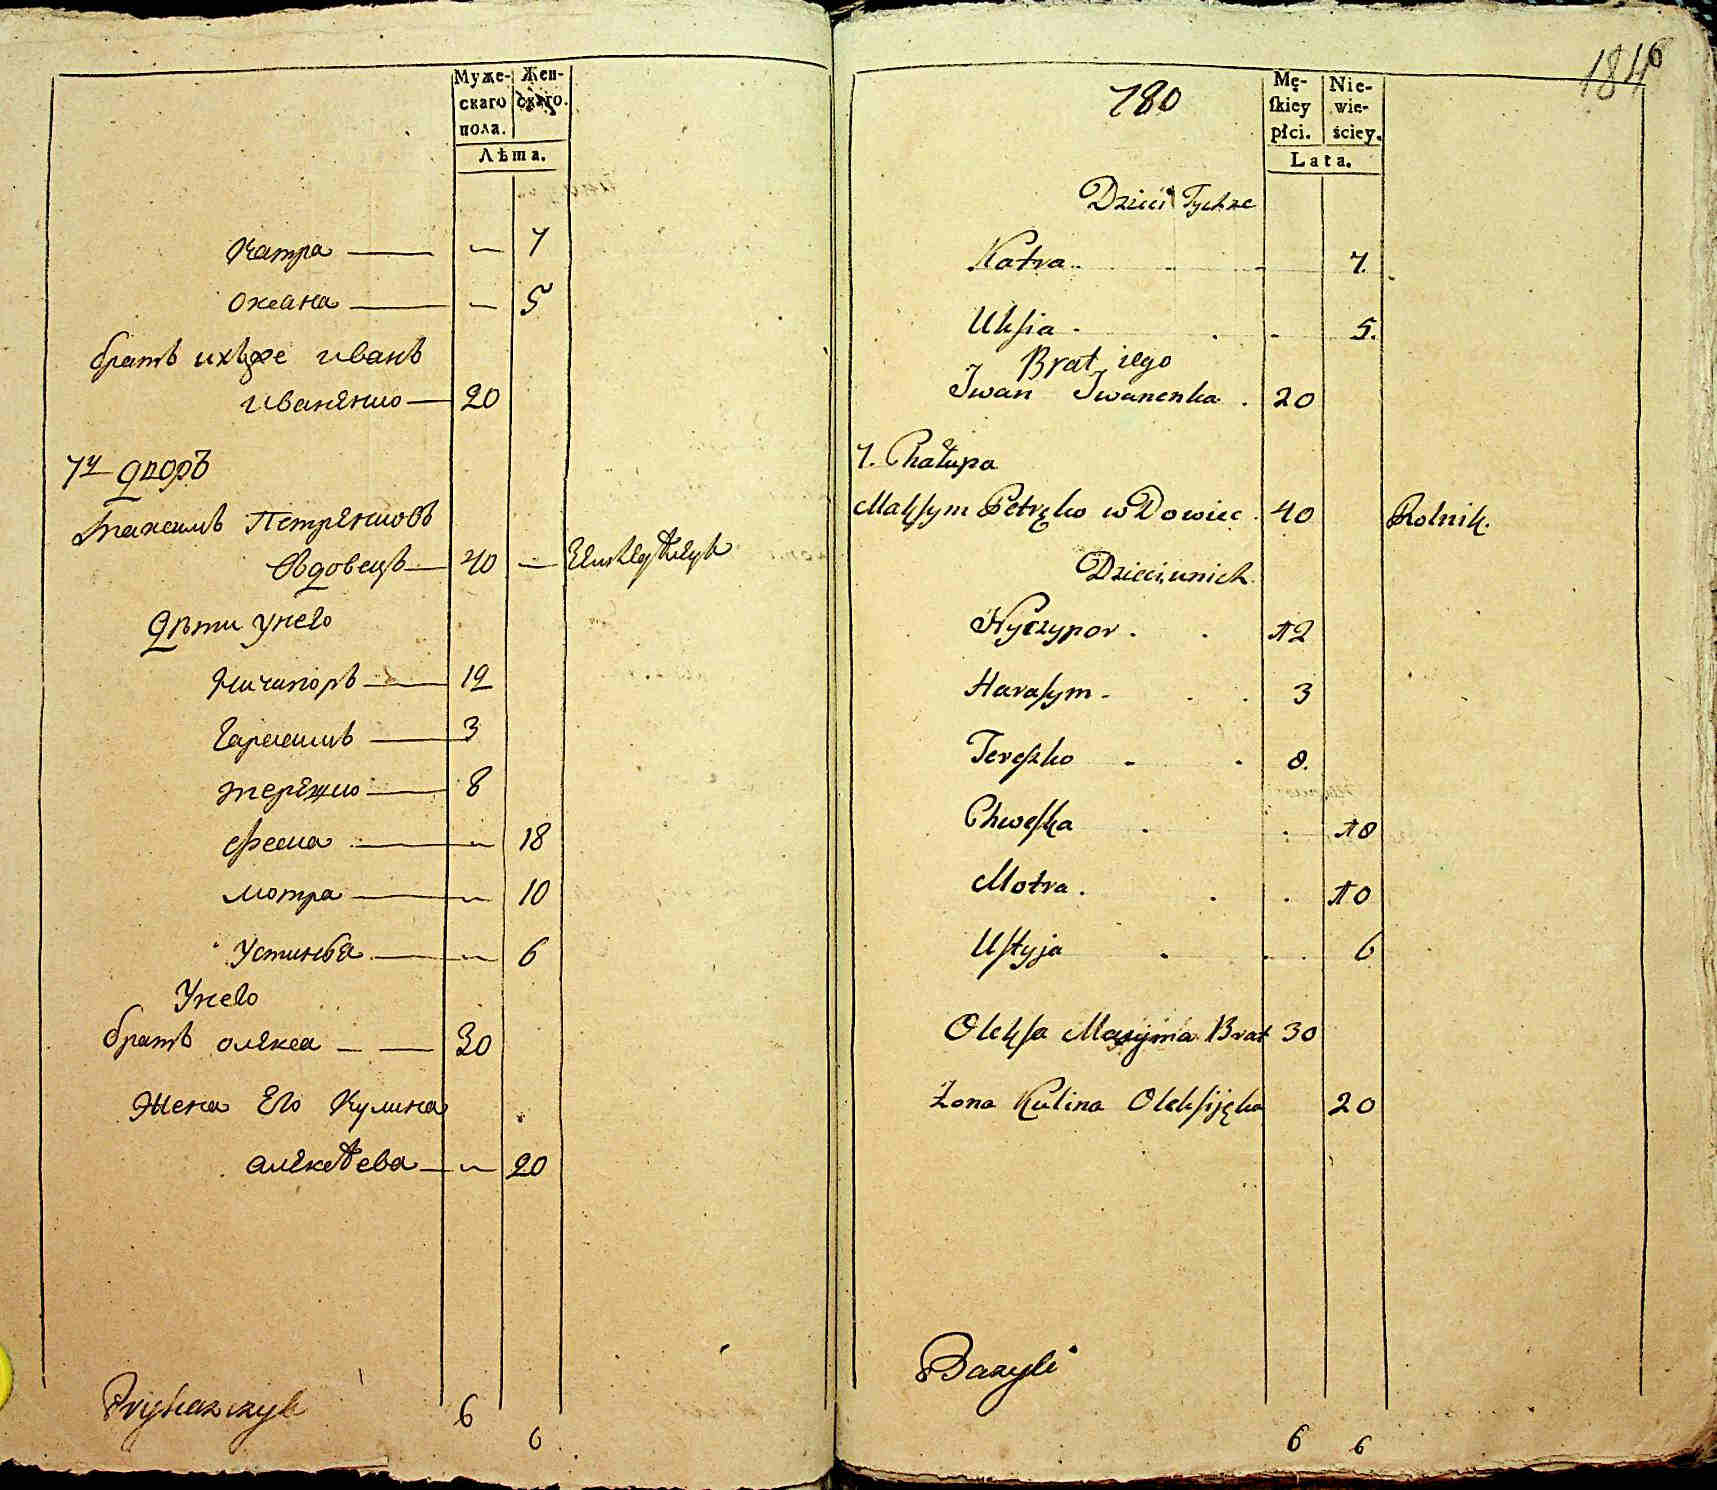 Муже-
скаго
пола.
Жен-
скаго.
Лѣта.
Катра — — 7
Оксана — — 5
братъ ихъже иванъ
иваненко — 20
7й дворъ
Максимъ Петренковъ
вдовецъ — 40 —
дѣти унего
Ничипоръ — 12
Гарасимъ — 3
терешко — 8
феска — — 18
мотра — — 10
устинья — — 6
Унего
братъ олекса — — 30
жена Его Кулина
алексѣева — — 20
Prykazczyk
6
6
180
1846
Mę-
ſkiey
płci.
Nie-
wie-
ściey.
Lata.
Dzieci Tychze
Katra . . 7.
Ukſia . . . 5.
Brat iego
Iwan Iwanenka . 20
7. Chałupa
Makſym Petręko wDowiec . 40 Rolnik.
Dzieci unich
Nyczypor . . 12
Haraſym . . . 3
Tereſzko . . 8.
Chweſka . . 18
Motra . . . 10
Uſtyja . . . 6
Olekſa Maxyma Brat 30
Żona Kulina Olekſijęka 20
Bazyli
6 6